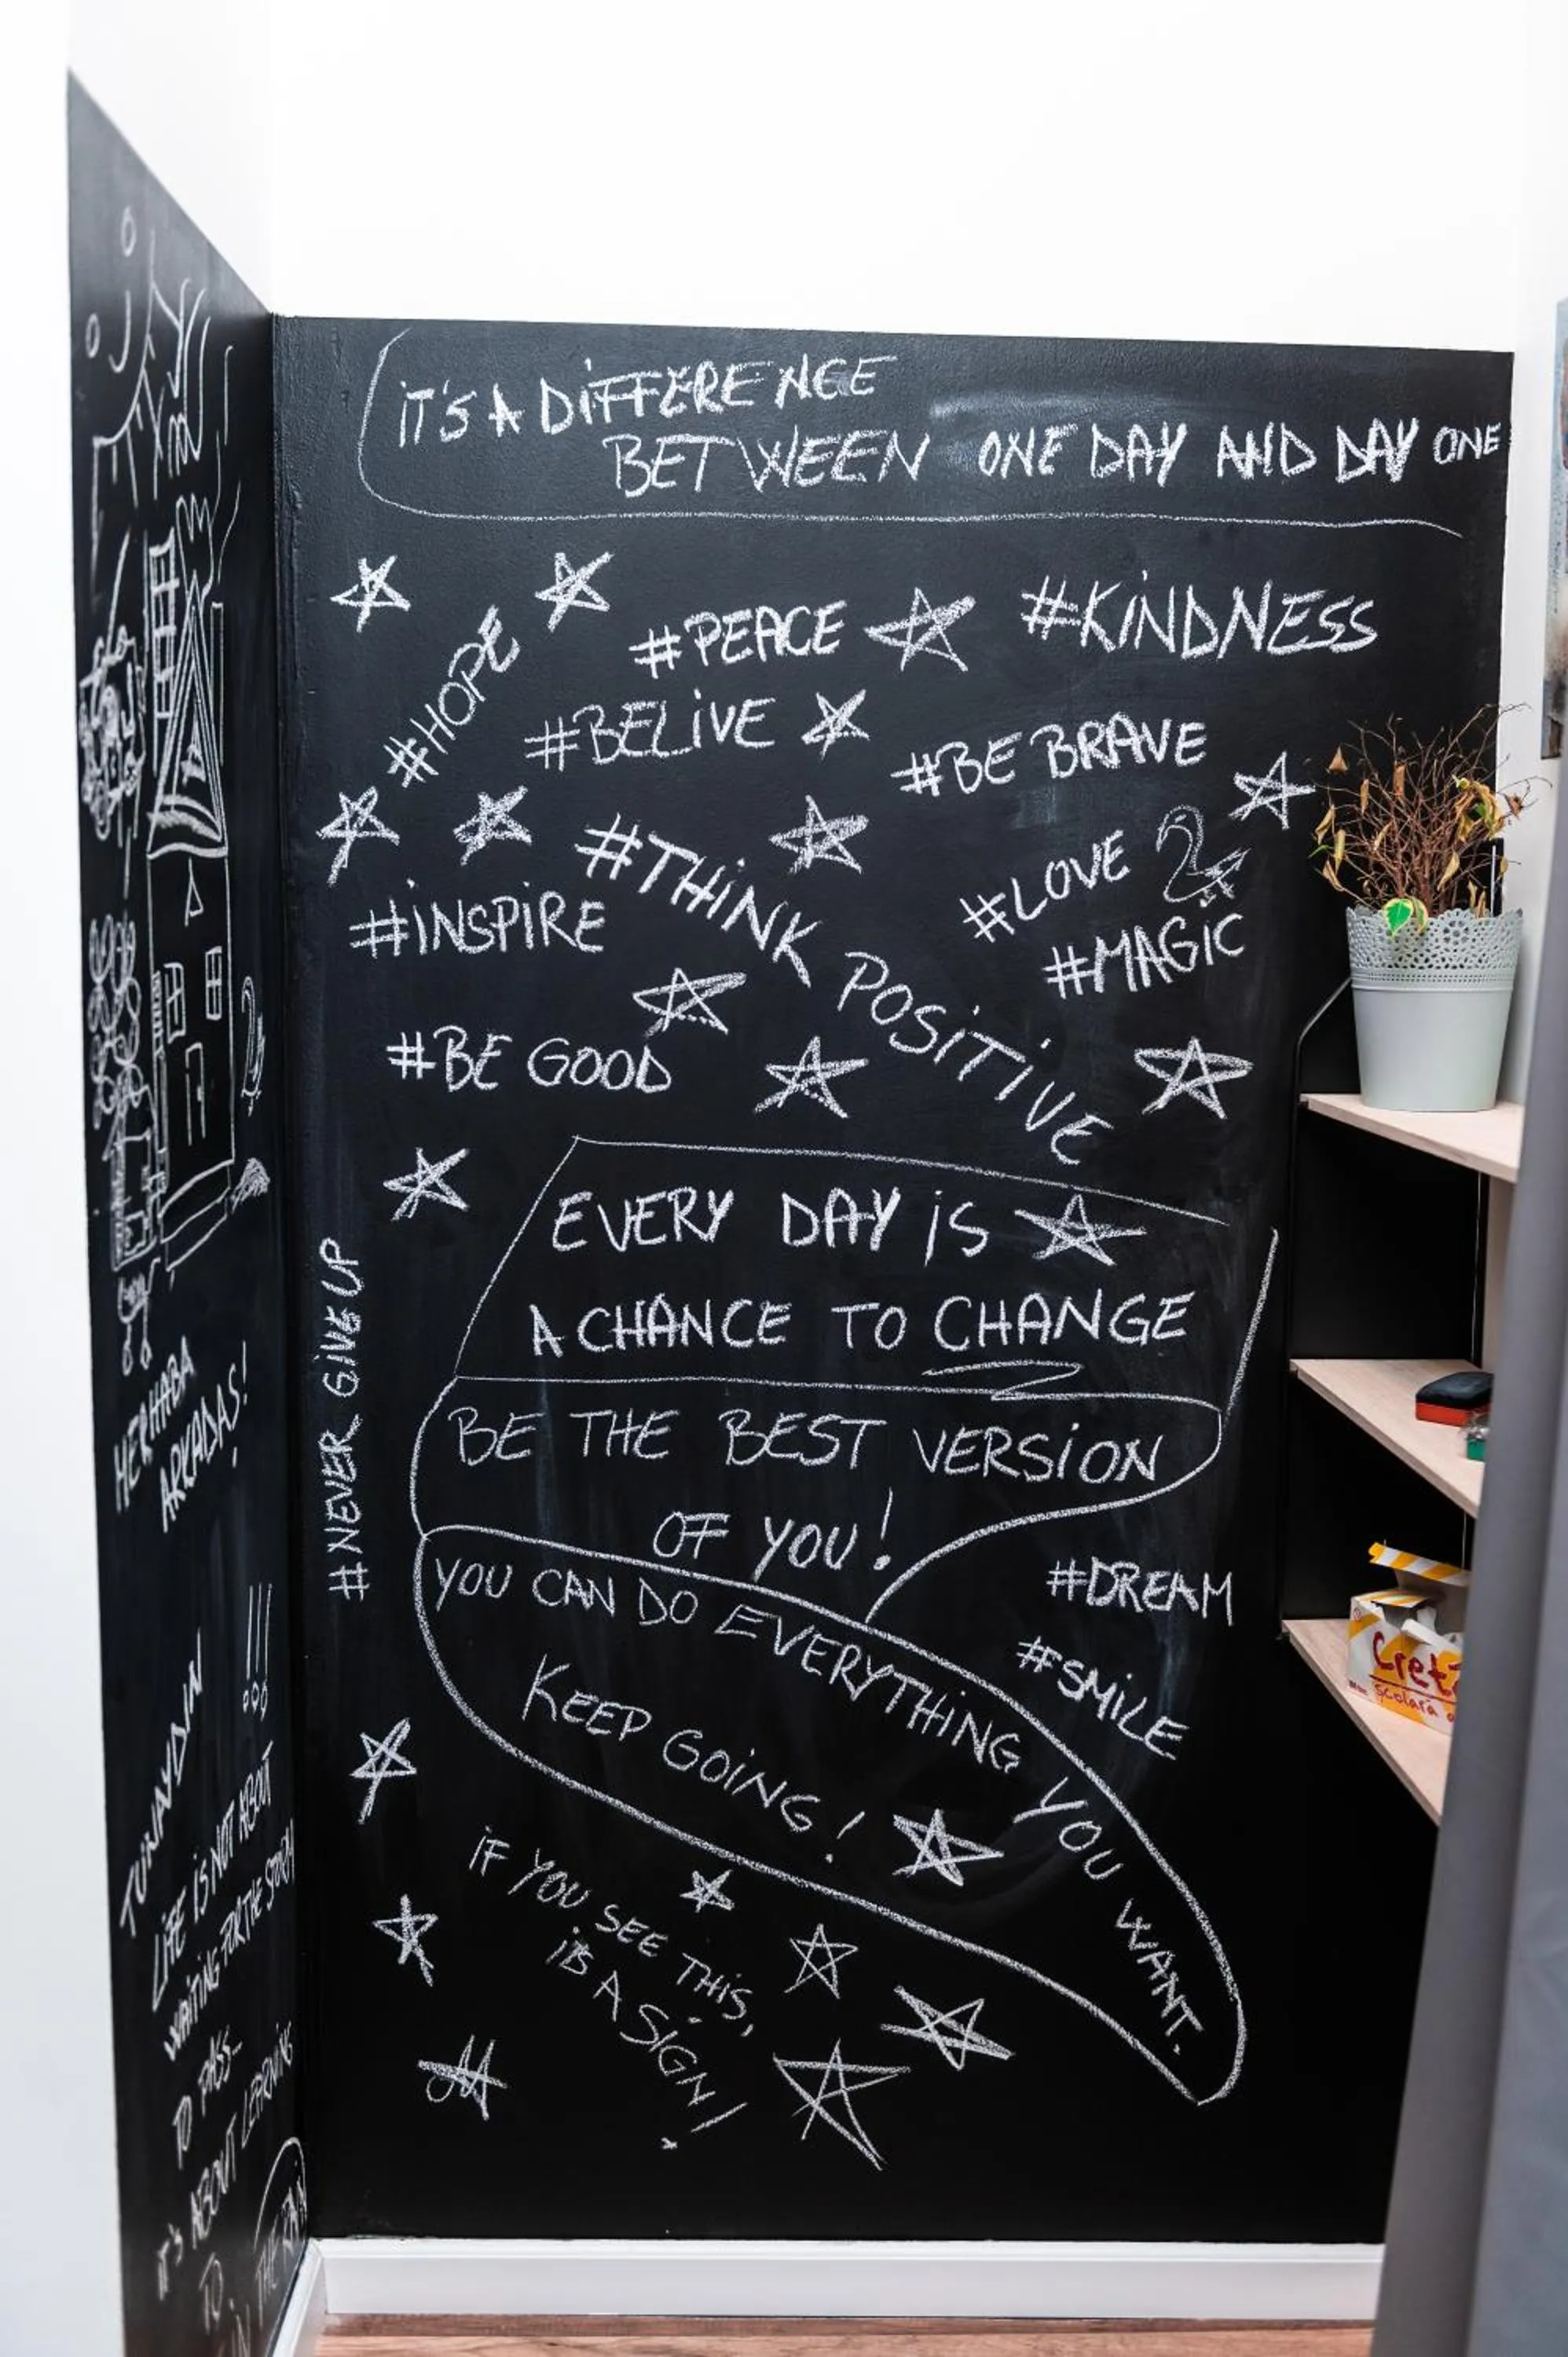 iT'S A DiFFERENCE
BETWEEN ONE DAY AND DAY ONE
#HOPE
#PEACE
#KiNDNESS
#BELiVE
#BE BRAVE
#THiNK POSiTiVE
#LOVE
#iNSPiRE
#MAGiC
#BE GOOD
EVERY DAY iS
A CHANCE TO CHANGE
#NEVER GIVE UP
BE THE BEST VERSiON
OF YOU!
YOU CAN DO EVERYTHiNG YOU WANT.
KEEP GOiNG!
#DREAM
#SMiLE
iF YOU SEE THiS,
iTS A SiGN!
MERHABA
ARKADAS!
!!!
LiFE iS NOT ABOUT
WAiTiNG FOR THE STORM
TO PASS-
iT'S ABOUT LEARNiNG
TO
iN THE RAiN
Cret
scolară